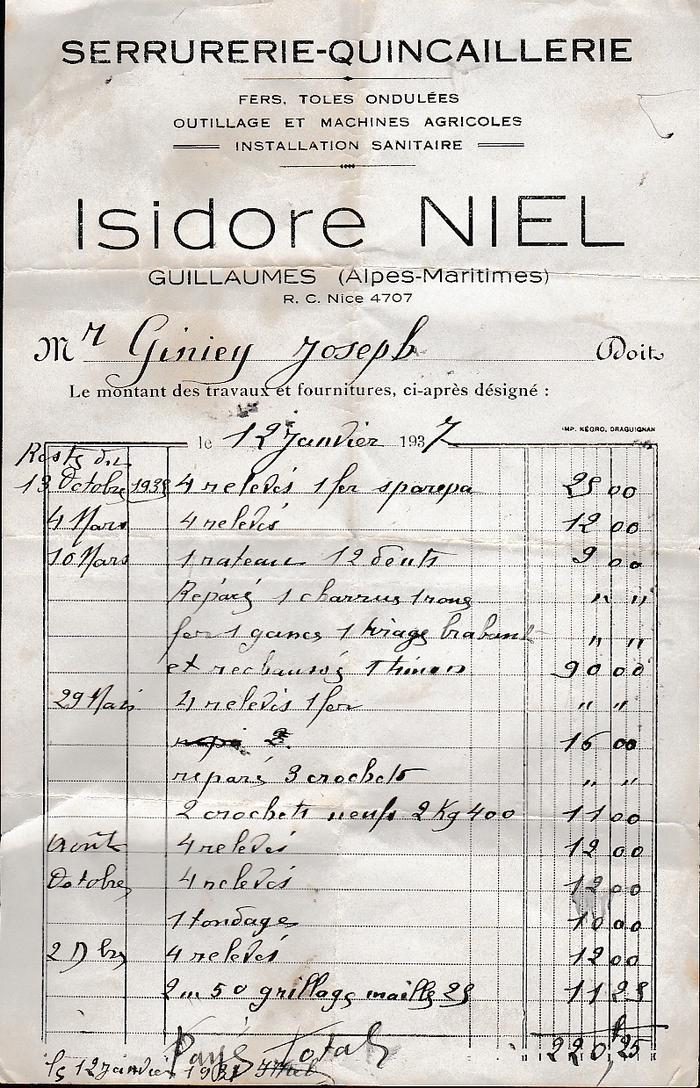 SERRURERIE-QUINCAILLERIE
FERS, TOLES ONDULÉES
OUTILLAGE ET MACHINES AGRICOLES
INSTALLATION SANITAIRE
Isidore NIEL
GUILLAUMES (Alpes-Maritimes)
R. C. Nice 4707
Mr Giniey Joseph Doit
Le montant des travaux et fournitures, ci-après désigné :
IMP. NÉGRO, DRAGUIGNAN
le 12 Janvier 1937
Reste du
13 Octobre 1935 4 relevés 1 fer 25 00
4 Mars 4 relevés 12 00
10 Mars 1 rateau 12 dents 9 00
Réparé 1 charrue 1 roue " "
fer 1 1 tirage brabant " "
et rechaussé 1 timon 90 00
29 4 relevés 1 fer " "
16 00
réparé 3 crochets " "
2 crochets neufs 2 Kg 400 11 00
Août 4 relevés 12 00
Octobre 4 relevés 12 00
1 tondage 10 00
2 Dbre 4 relevés 12 00
2m 50 grillage maille 25 11 25
Payé Total 220f 25
le 12 janvier 1937 Niel